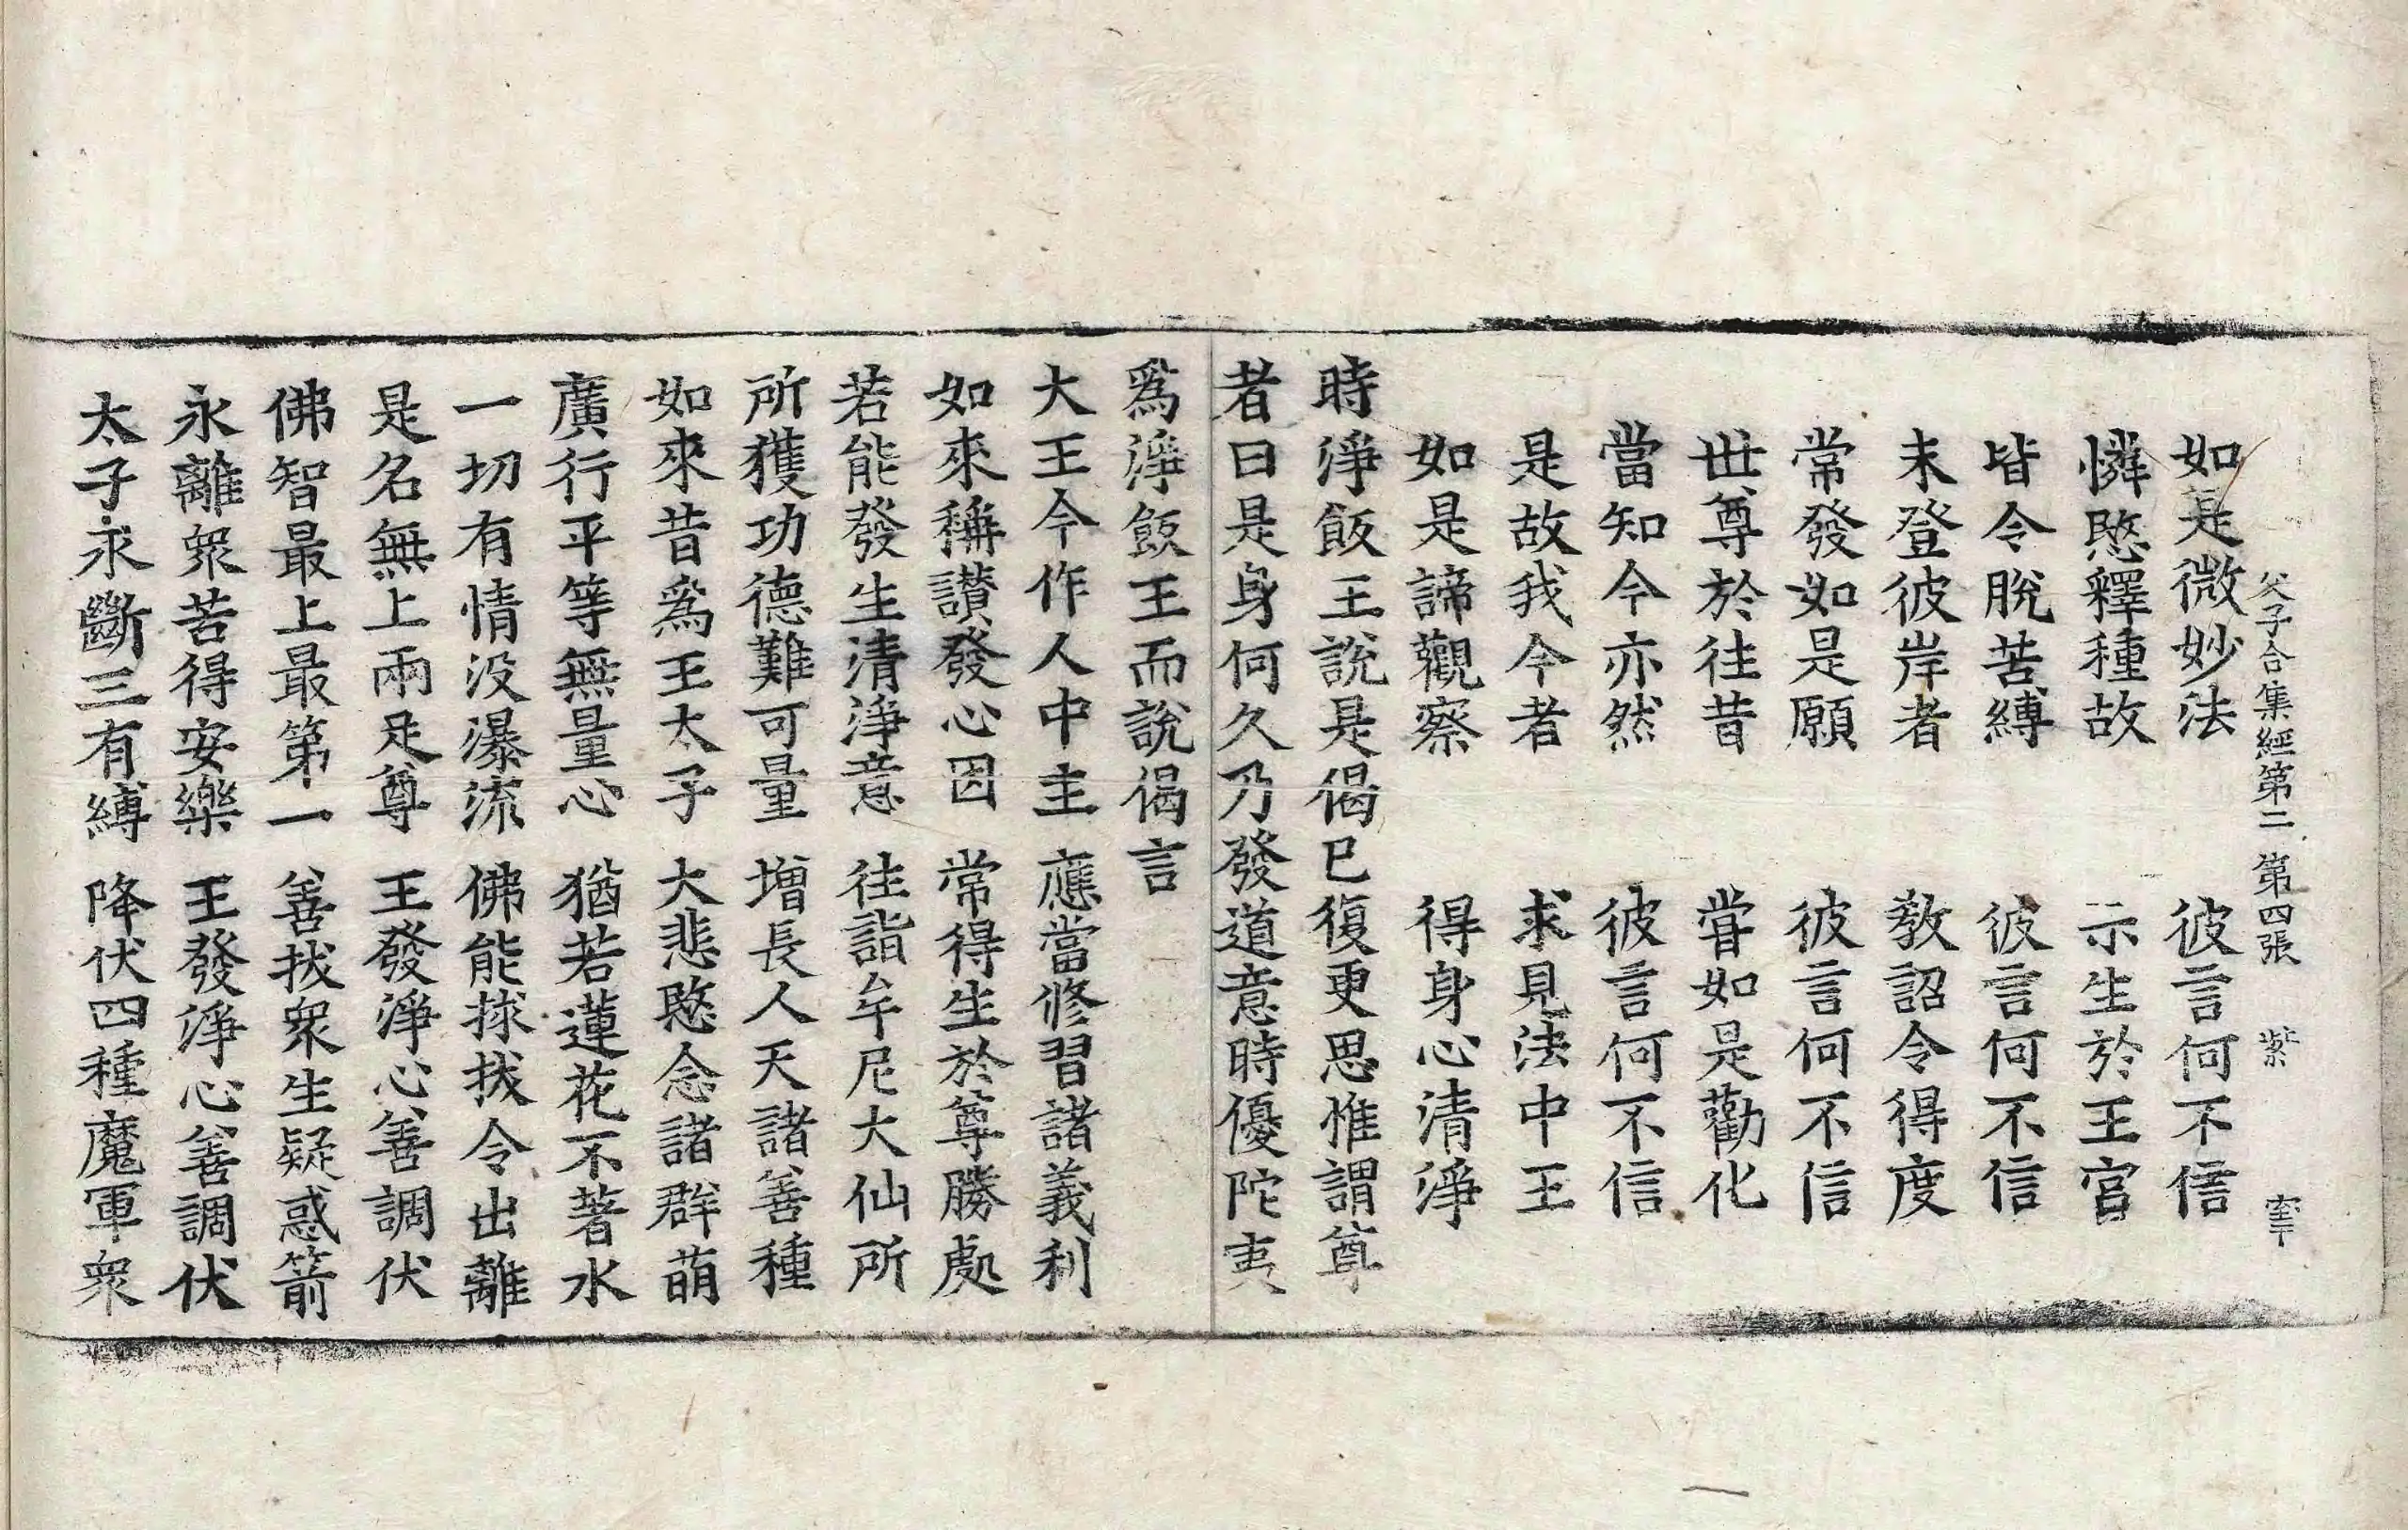 父子合集經第二 第四張 紫
如是微妙法 彼言何不信
憐愍釋種故 示生於王宮
皆令脫苦縛 彼言何不信
未登彼岸者 教詔令得度
常發如是願 彼言何不信
世尊於往昔 甞如是勸化
當知今亦然 彼言何不信
是故我今者 求見法中王
如是諦觀察 得身心清淨
時淨飯王說是偈已復更思惟謂尊
者曰是身何久乃發道意時優陀夷
爲淨飯王而說偈言
大王今作人中主 應當修習諸義利
如來稱讃發心因 常得生於尊勝處
若能發生清淨意 往詣牟尼大仙所
所獲功德難可量 增長人天諸善種
如來昔爲王太子 大悲愍念諸群萌
廣行平等無量心 猶若蓮花不著水
一切有情沒瀑流 佛能捄拔令出離
是名無上兩足尊 王發淨心善調伏
佛智最上最第一 善拔衆生疑惑箭
永離衆苦得安樂 王發淨心善調伏
太子永斷三有縛 降伏四種魔軍衆